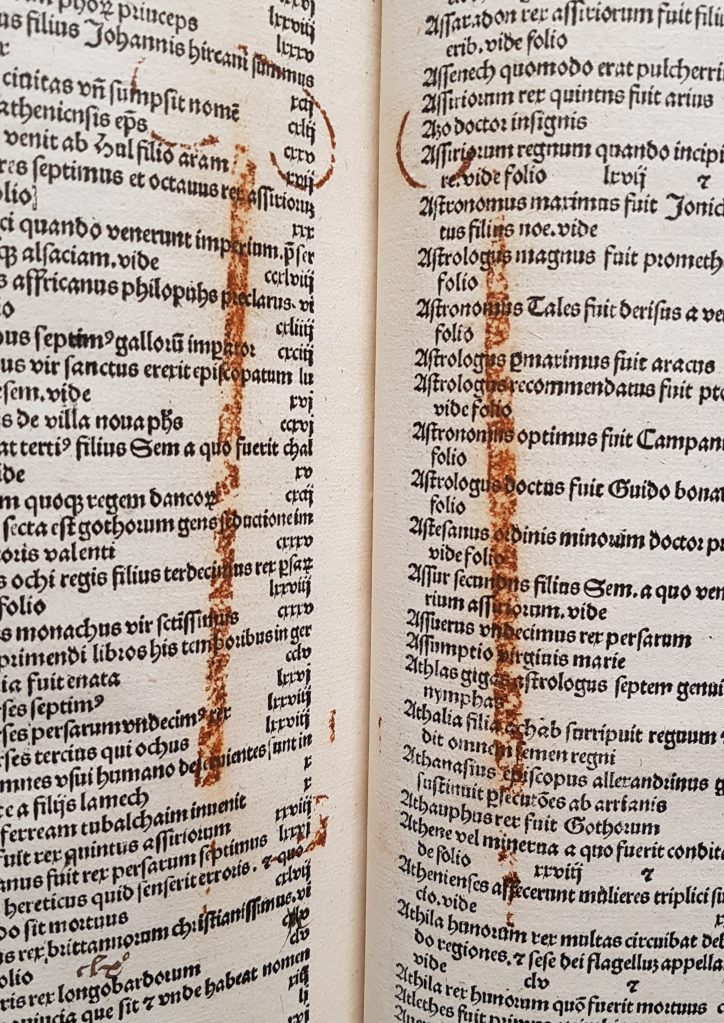 um phoꝝ princeps
us filius Johannis hircani summus
lxxviij
lxxxv
ciuitas vñ sumpsit nomē
xcij
atheniensis ep̄s
cxlij
venit ab Hul filio aram
cxxv
res septimus et octauus rex assirioruꝫ
xvij
olio]
xxx
ci quando venerunt imperium. p̄ser
qꝫ alsaciam. vide
cclviij
s affricanus philopūhs preclarus. vi
io
cxliiij
ous septim⁹ gallorū imperator
cxciij
us vir sanctus erexit episcopatum lu
esem. vide
xvj
s de villa noua phs
ccxvj
at terti⁹ filius Sem a quo fuerit chal
ide
xv
m quoqꝫ regem dancoꝝ
cxcij
secta est gothorum gens seductione im
toris valenti
cxxxv
s ochi regis filius terdecimus rex p̱saꝝ
folio
lxxviij
s monachus vir sctissimus
cxxxv
primendi libros his temporibus in ger
ia fuit enata
cclv
rses septim⁹
lxxvj
rses persarum vndecim⁹ rex
lxxviij
rses tercius qui ochus
lxxviij
mnes vsui humano deseruientes sunt in
te a filijs lamech
x
ferream tubalchaim inuenit
x
fuit rex quintus assiriorum
xxviij
anus fuit rex persarum septimus
lxxxj
hereticus quid senserit erroris. ⁊ quo
do sit mortuus
cxlvij
us rex brittannorum christianissimus. vi
olio
clv
ris rex longobardorum
clv
ouincia que sit ⁊ vnde habeat nomen
xcij
lj
xvj
Assaradon rex assiriorum fuit filiu
erib. vide folio
Assenech quomodo erat pulcherri
Assiriorum rex quintus fuit arius
Azo doctor insignis
Assiriorum regnum quando incipi
re. vide folio lxvij ⁊
Astronomus maximus fuit Jonich
tus filius noe. vide
Astrologus magnus fuit prometh
folio
Astronomus Tales fuit derisus a ve
folio
Astrologus p̱maximus fuit aracus
Astrologus recommendatus fuit pto
vide folio
Astronomus optimus fuit Campan
folio
Astrologus doctus fuit Guido bonat
folio
Astesanus ordinis minorum doctor p
vide folio
Assur secundus filius Sem. a quo ven
rium assiriorum. vide
Assuerus vndecimus rex persarum
Assumptio virginis marie
Athlas gigas astrologus septem genui
nymphas
Athalia filia achab surripuit regnum ⁊
dit omnem semen regni
Athanasius episcopus allexandrinus g
sustinuit p̱secutōes ab arrianis
Athauphus rex fuit Gothorum
Athene vel minerua a quo fuerit condita
de folio xxviij ⁊
Athenienses affecerunt mulieres triplici su
cio. vide
Athila hunorum rex multas circuibat deb
do regiones. ⁊ sese dei flagelluꝫ appella
vide clv ⁊
Athila rex hunorum quō fuerit mortuus
Atlethes fuit primus